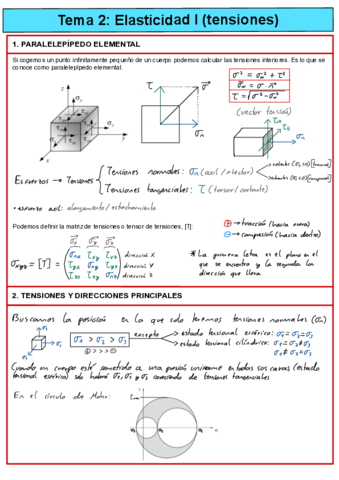 Tema 2: Elasticidad I (tensiones)
1. PARALELEPÍPEDO ELEMENTAL
Si cogemos un punto infinitamente pequeño de un cuerpo podemos calcular las tensiones interiores. Es lo que se
conoce como paralelepípedo elemental.
σ² = σn² + τ²
τ = √σ² - σn²
(vector tensión)
Esfuerzos → Tensiones
Tensiones normales: σn (axil / flector)
Tensiones tangenciales: τ (torsor / cortante)
• esfuerzo axil: alargamiento / estrechamiento
Podemos definir la matriz de tensiones o tensor de tensiones, [T]:
σxyz = [T] =
dirección X
dirección Y
dirección Z
⊕ → tracción (hacia fuera)
⊖ → compresión (hacia dentro)
* La primera letra es el plano en el
que se encuentra y la segunda la
dirección que lleva
2. TENSIONES Y DIRECCIONES PRINCIPALES
Buscamos la posición en la que solo tenemos tensiones normales (σn)
σ1 > σ2 > σ3
excepto
estado tensional esférico: σ1 = σ2 = σ3
estado tensional cilíndrico: σ1 = σ2 ≠ σ3
Cuando un cuerpo esté sometido a una presión uniforme en todas sus caras (estado
tensional esférico) solo habrá σ1, σ2 y σ3 careciendo de tensiones tangenciales
En el círculo de Mohr: